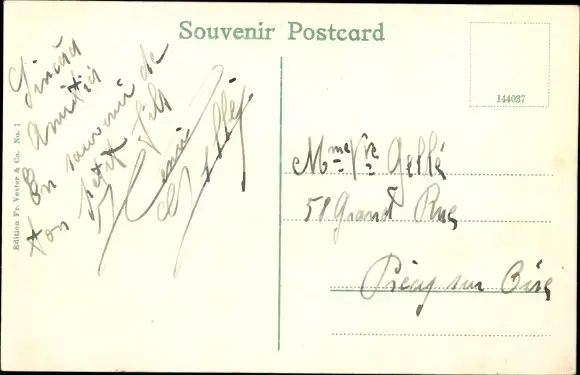 Souvenir Postcard
144037
Edition Fr. Vester & Co. No. 1
Sincère
Amitié
En souvenir de
ton petit fils
Gellé
Mme Vve Gellé
58 Grand Rue
Précy sur Oise